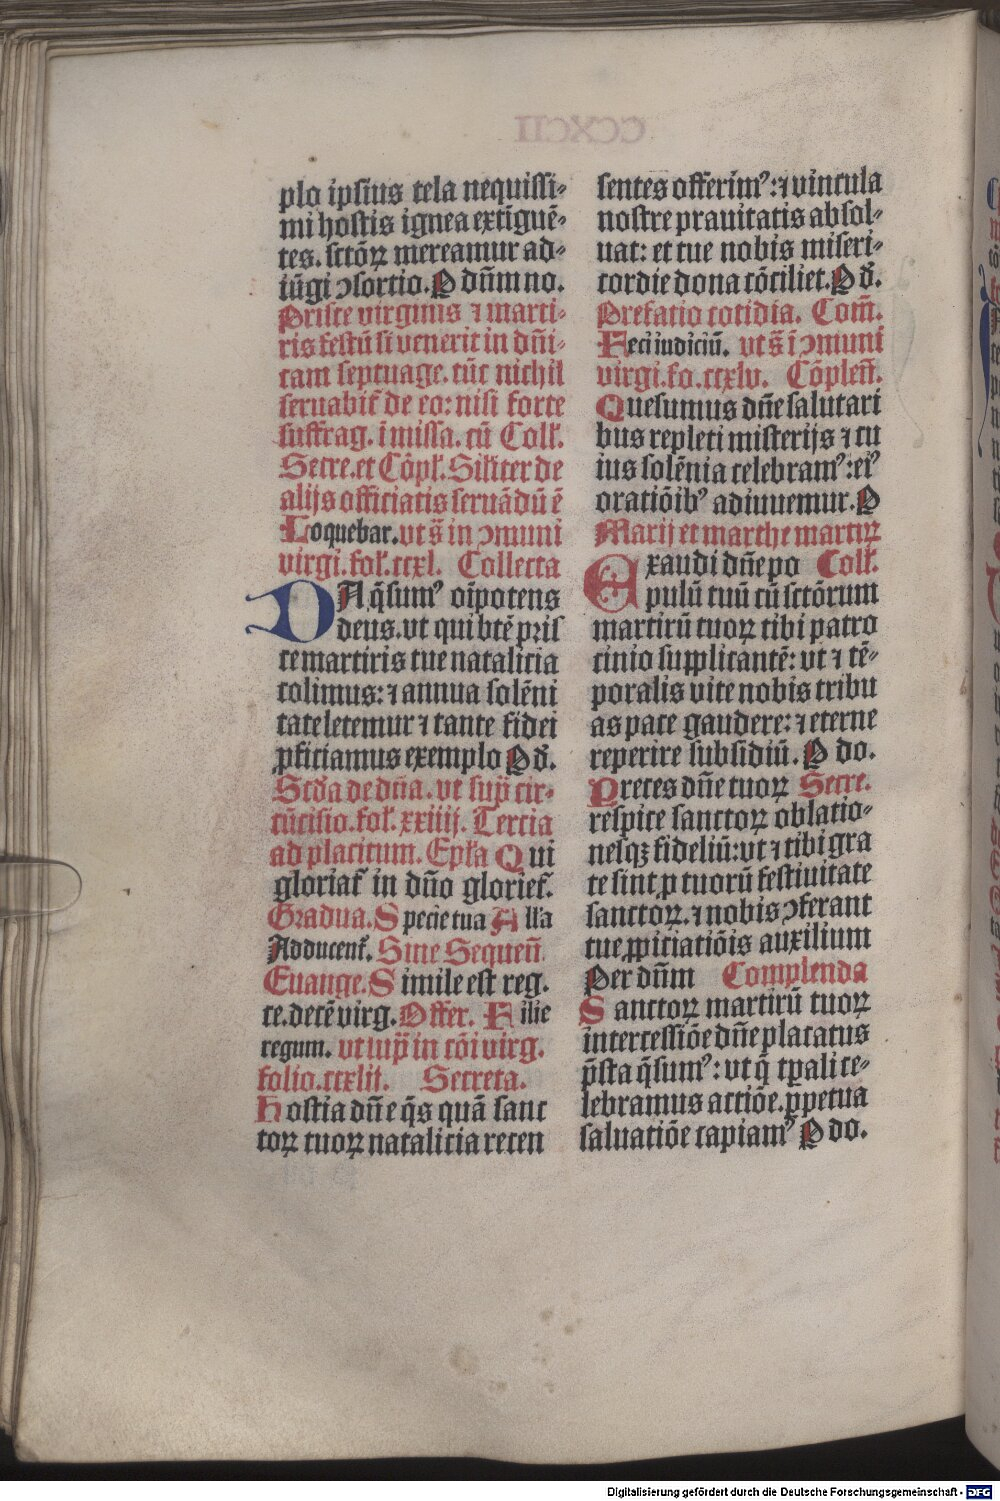 CCXCII
plo ipsius tela nequissi-
mi hostis ignea extīguē-
tes. sctōꝝ mereamur ad-
iūgi ↄsortio. P dn̄m no.
Prisce virginis ⁊ marti-
ris festū si venerit in dn̄i-
cam septuage. tūc nichil
seruabit̄ de eo: nisi forte
suffrag. ī missa. cū Coll̄.
Secre. et Cōpl̄. Silīter de
alijs officiatis seruādū ē
Loquebar. vt s̄ in ↄmuni
virgi. fol̄. ccxl. Collecta
DA q̄sumꝰ oīpotens
deus. vt qui btē pris
ce martiris tue natalicia
colimus: ⁊ annua solēni
tate letemur ⁊ tante fidei
ꝓficiamus exemplo P dꝫ.
Scd̄a de dn̄a. vt sup̄ cir-
cūcisio. fol̄. xxiiij. Tercia
ad placitum. Epl̄a Qui
gloriat̄ in dn̄o glorief̄.
Gradua. Specie tua All'a
Adducent̄. Sine Sequen̄.
Euange. Simile est reg.
ce. decē virg. Offer. Filie
regum. vt sup̄ in cōi virg.
folio. ccxlij. Secreta.
Hostia dn̄e q̄s quā sanc
toꝝ tuoꝝ natalicia recen
sentes offerimꝰ: ⁊ vincula
nostre prauitatis absol-
uat: et tue nobis miseri-
cordie dona cōciliet. P dꝫ.
Prefatio cotidia. Com̄.
Feci iudiciū. vt s̄ ī ↄmuni
virgi. fo. ccxlv. Cōplen̄.
Quesumus dn̄e salutari
bus repleti misterijs ⁊ cu
ius solēnia celebramꝰ: eiꝰ
oratiōibꝰ adiuuemur. P
Marij et marthe martirꝝ
Exaudi dn̄e po Coll̄.
pulū tuū cū sctōrum
martirū tuoꝝ tibi patro
cinio supplicantē: vt ⁊ tē-
poralis vite nobis tribu
as pace gaudere: ⁊ eterne
reperire subsidiū. P do.
Preces dn̄e tuoꝝ Secre.
respice sanctoꝝ oblatio-
nesqꝫ fideliū: vt ⁊ tibi gra
te sint ꝓ tuorū festiuitate
sanctoꝝ. ⁊ nobis ↄferant
tue ꝓpiciatiōis auxilium
Per dn̄m Complenda
Sanctoꝝ martirū tuoꝝ
intercessiōe dn̄e placatus
p̄sta q̄sumꝰ: vt q̄ tꝑali ce-
lebramus actiōe. ꝑpetua
saluatiōe capiamꝰ P do.
Digitalisierung gefördert durch die Deutsche Forschungsgemeinschaft - DFG